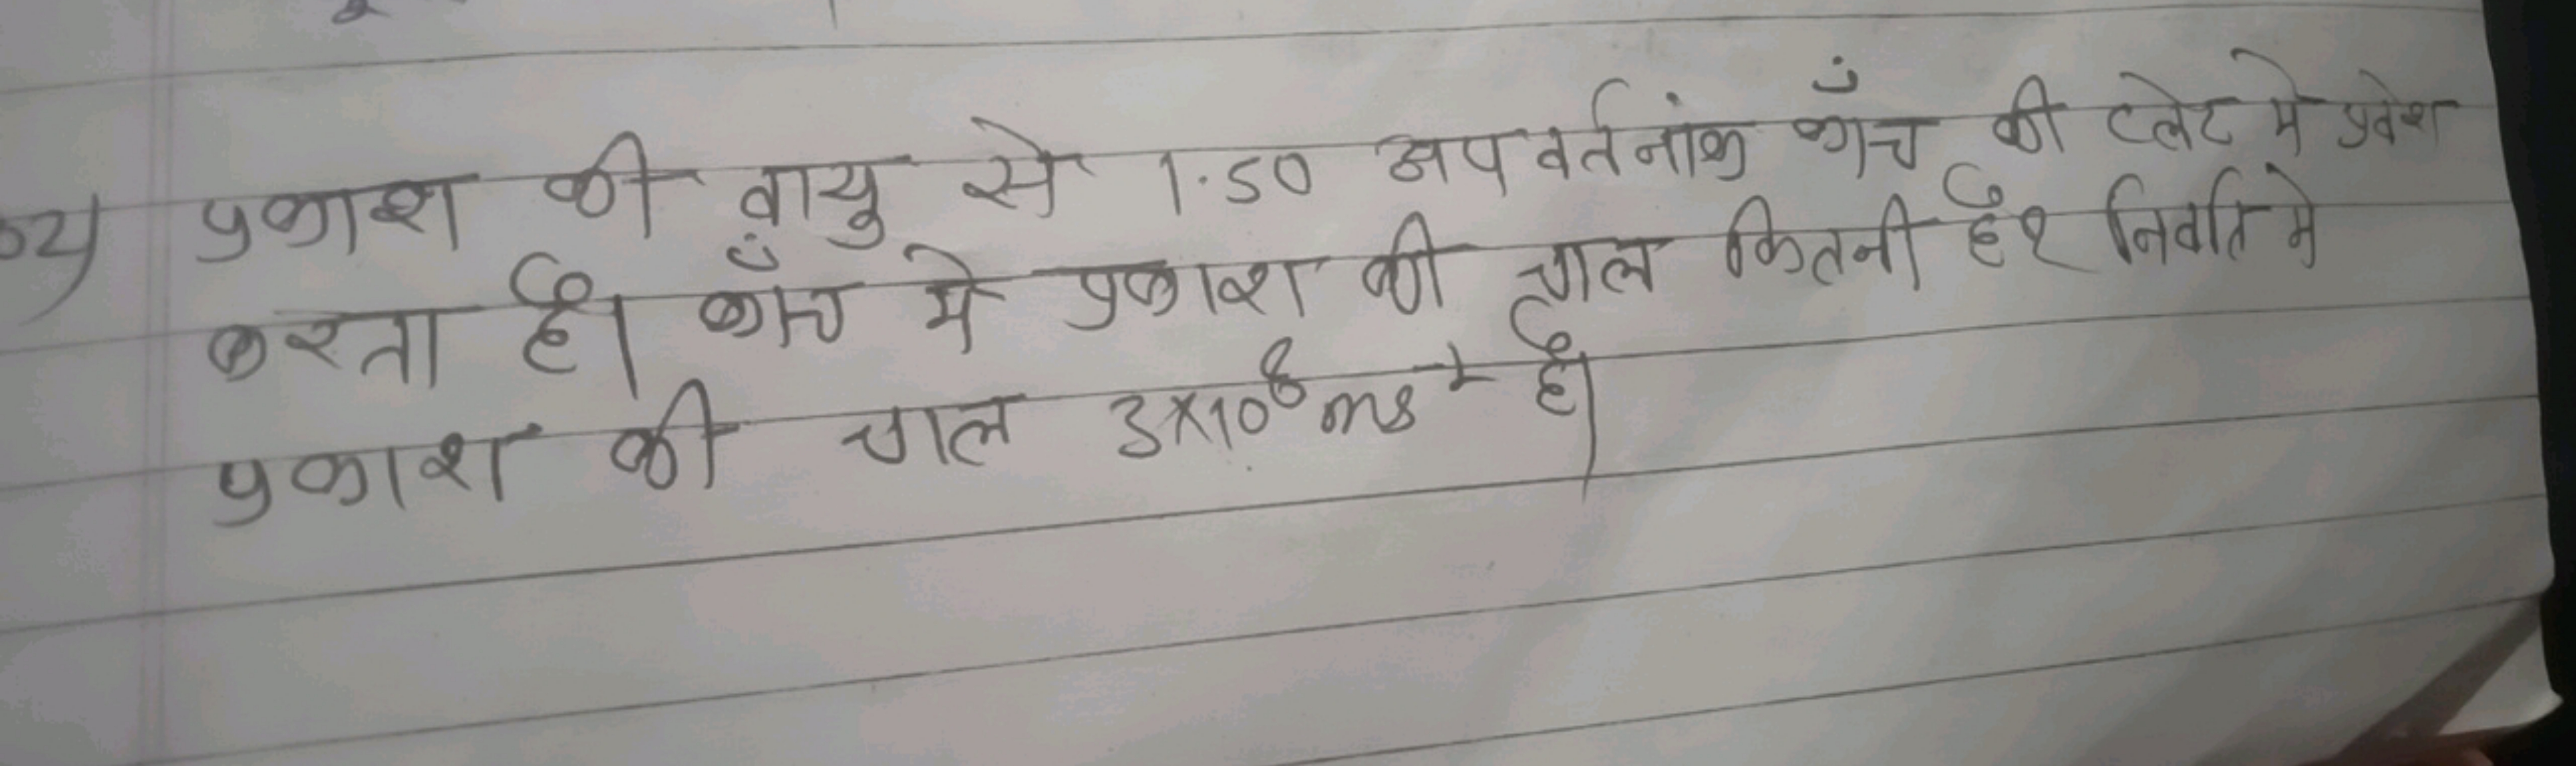 प्रकाश की वायु से 1.50 अपवर्तनांक काँच की प्लेट मे प्रवेश
करता है। काँच मे प्रकाश की चाल कितनी है? निर्वात मे
प्रकाश की चाल 3×10⁸ ms⁻¹ है।